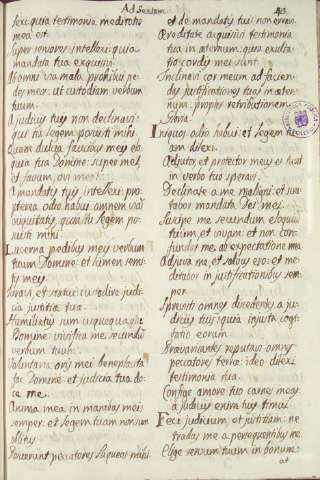 Ad Sextam
lexi: quia testimonia meditatio
mea est.
Super senores intellexi: quia
mandata tua exquisivi.
Ab omni via mala prohibui pe-
des meos: ut custodiam verba
tua.
A judicijs tuis non declinavi:
qui tu legem posuisti mihi.
Quam dulcia faucibus meis elo-
quia tua Domine: super mel
et favum, ori meo.
A mandatis tuis intellexi: pro-
pterea odio habui omnem viã
iniquitatis, quia tu legem po-
suisti mihi.
Lucerna pedibus meis verbum
tuum Domine: et lumen semi-
tis meis.
Juravi, et statui custodire judi-
cia justitiæ tuæ.
Humiliatus sum usquequaque
Domine: vivifica me secundũ
verbum tuum.
Voluntaria oris mei beneplacita
fac Domine: et judicia tua do-
ce me.
Anima mea in manibus meis
semper: et legem tuam non sum
oblitus.
Posuerunt peccatores laqueos mihi:
et de mandatis tuis non erravi.
Hæreditate acquisivi testimonia
tua in æternum: quia exulta-
tio cordis mei sunt.
Inclinavi cor meum ad facien-
das justificationes tuas in æter-
num, propter retributionem.
Gloria.
Iniquos odio habui: et legem tu-
am dilexi.
Adjutor, et protector meus es tu: et
in verbo tuo speravi.
Declinate a me maligni: et scru-
tabor mandata Dei mei.
Suscipe me secundum eloquiũ
tuum, et vivam: et non con-
fundas me ab expectatione mea.
Adjuva me, et salvus ero: et me-
ditabor in justificationibus sem-
per.
Sprevisti omnes discedentes a ju-
dicijs tuis: quia injusta cogi-
tatio eorum.
Prævaricantes reputavi omnes
peccatores terræ: ideo dilexi
testimonia tua.
Confige timore tuo carnes meas:
a judicijs enim tuis timui.
Feci judicium, et justitiam: ne
tradas me a persequentibus me.
Elige servum tuum in bonum: